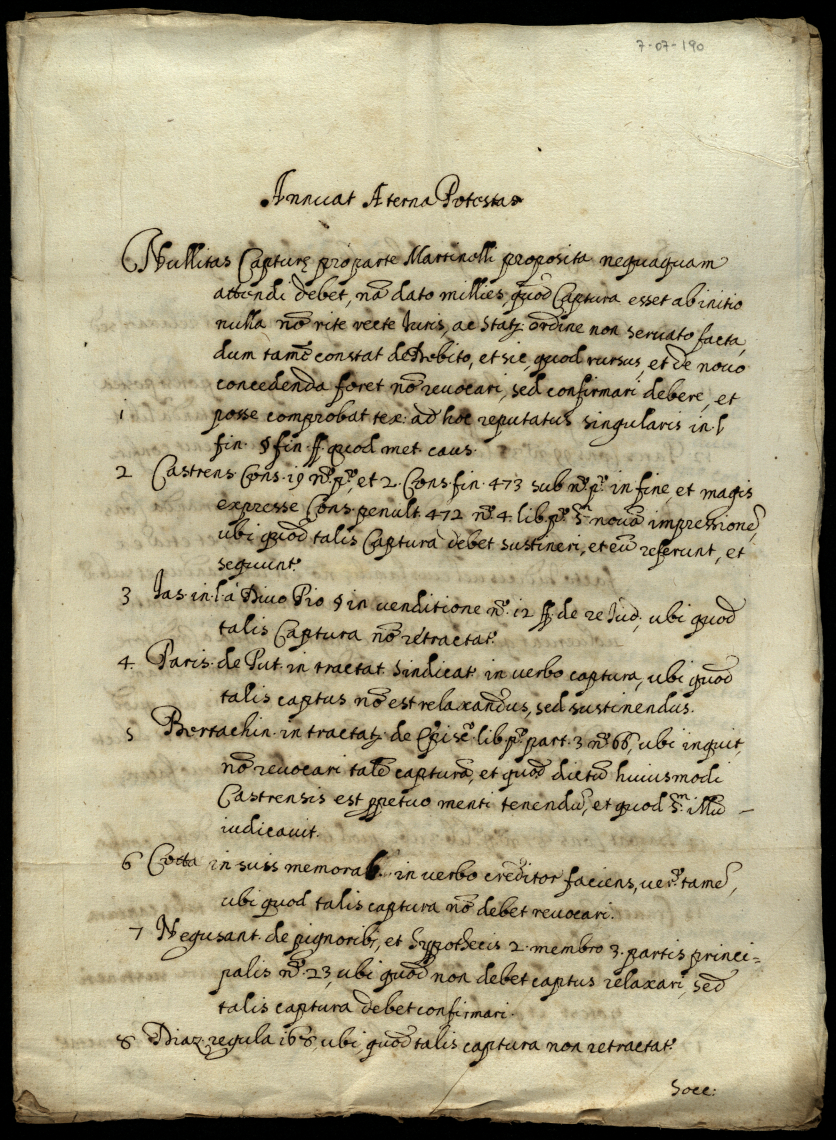 7-07-190
Annuat Æterna Potestas
Nullitas Capturę pro parte Martinelli proposita nequaquam
attendi debet, nã dato millies, quod Captura esset ab initio
nulla nõ rite recte Iuris, ac Stat. ordine non servato facta,
dum tamẽ constat de Debito, et sic, quod rursus, et de novo
concedenda foret nõ revocari, sed confirmari debere, et
1 posse comprobat tex: ad hoc reputatus singularis in l
fin. § fin ff. quod met caus.
2 Castrens. Cons. 19 nº. pº, et 2. Cons. fin. 473 sub nº. pº. in fine, et magis
expresse Cons. penult. 472 nº. 4. lib. pº. sm̃ novã impressionẽ,
ubi quod talis Captura debet sustineri, et eũ referunt, et
sequunt.r
3 Jas. in l. a Divo Pio § in venditione nº. 12 ff. de re Iud. ubi quod
talis Captura nõ retractat.r
4. Paris. de Put. in tractat. Sindicat. in verbo captura, ubi quod
talis captus nõ est relaxandus, sed sustinendus.
5 Bertachin. in tractat. de Episc. lib. pº. part. 3 nº. 66, ubi inquit,
nõ revocari talẽ capturã, et quod dictũ huiusmodi
Castrensis est ppetuo menti tenendũ, et quod sm̃ illũ
iudicavit.
6 Cotta in suis memorab. in verbo creditor faciens, ver. tamẽ,
ubi quod talis captura nõ debet revocari.
7 Negusant. de pignorib, et hypothecis 2. membro 3. partis princi=
palis nº. 23, ubi quod non debet captus relaxari, sed
talis captura debet confirmari.
8 Diaz. regula 168, ubi, quod talis captura non retractat.r
Socc: